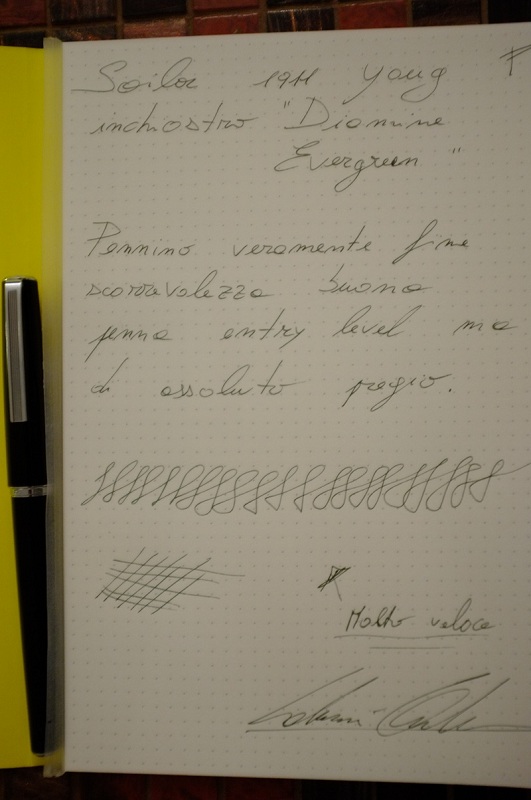 Sailor 1911 Young
inchiostro "Diamine
Evergreen"
Pennino veramente fine
scorrevolezza buona
penna entry level ma
di assoluto pregio.
Molto veloce